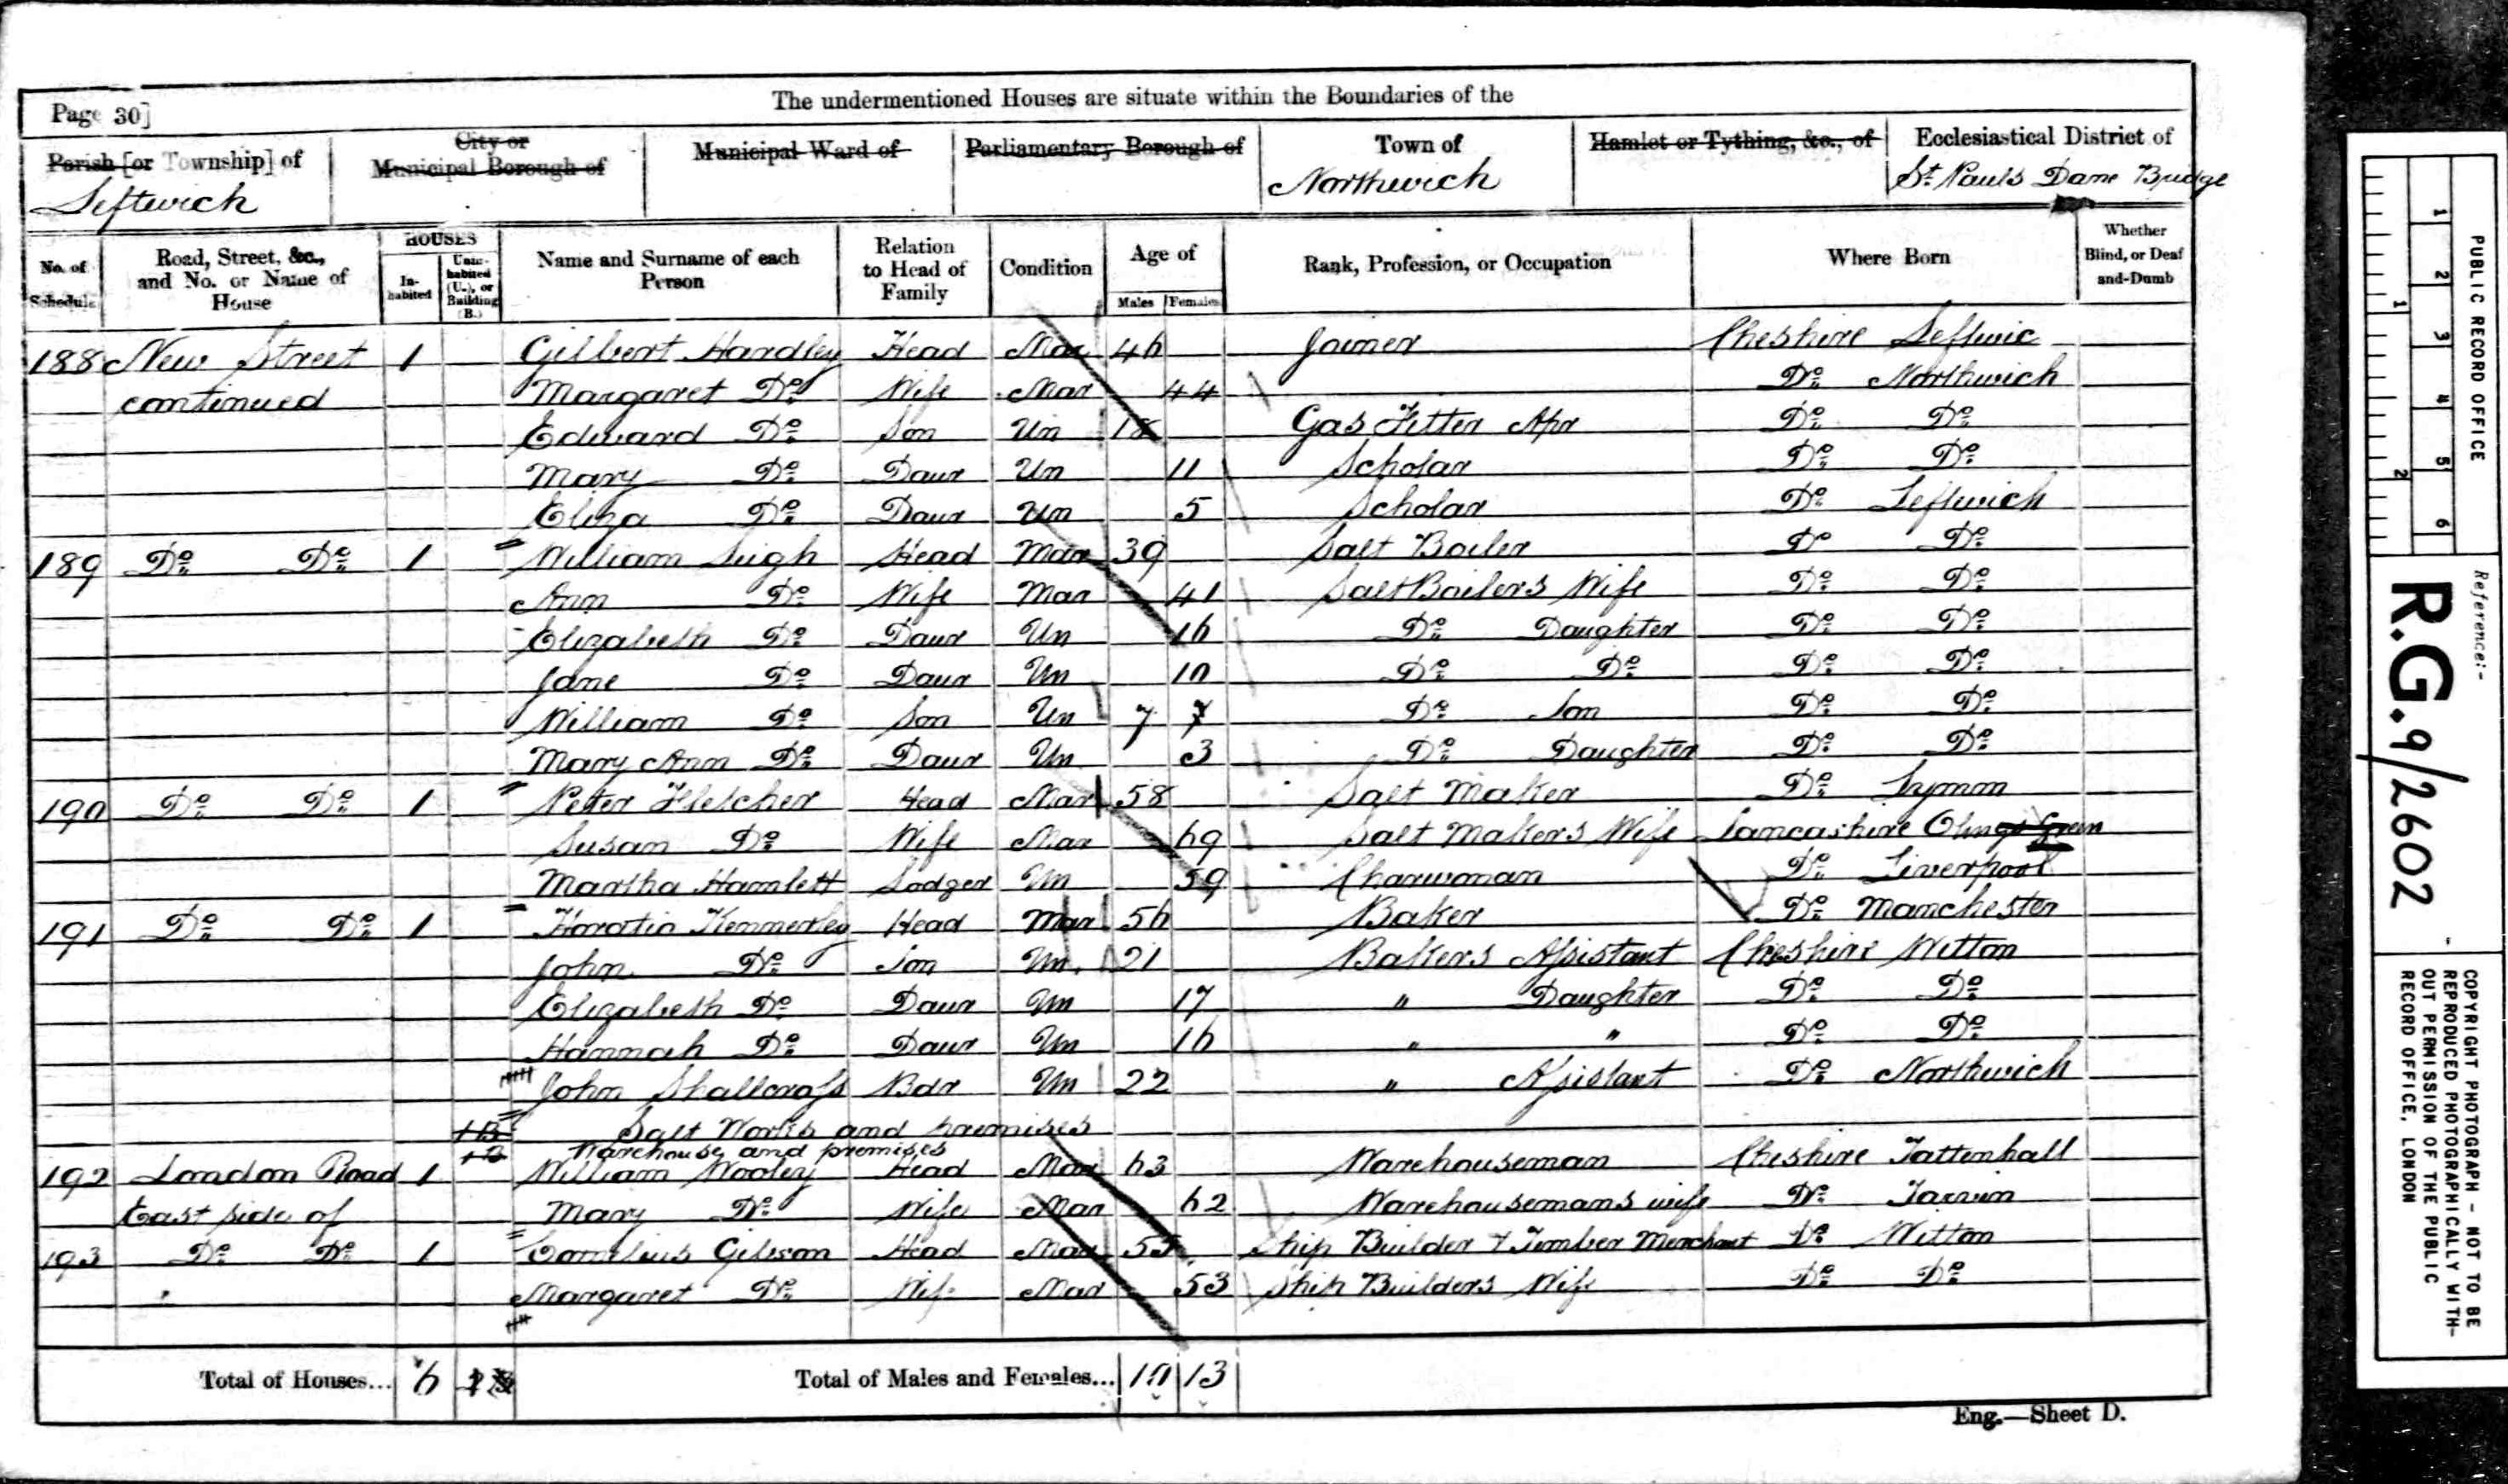 The undermentioned Houses are situate within the Boundaries of the
Page 30]
Parish [or Township] of
Leftwich
City or
Municipal Borough of
Municipal Ward of
Parliamentary Borough of
Town of
Northwich
Hamlet or Tything, &c., of
Ecclesiastical District of
St. Pauls Dane Bridge
No. of Schedule
Road, Street, &c., and No. or Name of House
HOUSES
In-habited
Unin-habited (U.), or Building (B.)
Name and Surname of each Person
Relation to Head of Family
Condition
Age of
Males Females
Rank, Profession, or Occupation
Where Born
Whether Blind, or Deaf-and-Dumb
188 New Street 1 Gilbert Hardley Head Mar 46 Joiner Cheshire Leftwic
continued Margaret Do Wife Mar 44 Do Northwich
Edward Do Son Un 18 Gas Fitter Apr Do Do
Mary Do Daur Un 11 Scholar Do Do
Eliza Do Daur Un 5 Scholar Do Leftwich
189 Do Do 1 William Leigh Head Mar 39 Salt Boiler Do Do
Ann Do Wife Mar 41 Salt Boilers Wife Do Do
Elizabeth Do Daur Un 16 Do Daughter Do Do
Jane Do Daur Un 10 Do Do Do Do
William Do Son Un 7 7 Do Son Do Do
Mary Ann Do Daur Un 3 Do Daughter Do Do
190 Do Do 1 Peter Fletcher Head Mar 58 Salt Maker Do Lymm
Susan Do Wife Mar 69 Salt Makers Wife Lancashire Green
Martha Hamlett Lodger Un 59 Charwoman Do Liverpool
191 Do Do 1 Horatio Kennerley Head Mar 56 Baker Do Manchester
John Do Son Un 21 Bakers Assistant Cheshire Witton
Elizabeth Do Daur Un 17 " Daughter Do Do
Hannah Do Daur Un 16 " " Do Do
John Shallcross Bdr Un 22 " Assistant Do Northwich
1B Salt Works and premises
1B Warehouse and premises
192 London Road 1 William Wooley Head Mar 63 Warehouseman Cheshire Tattenhall
East side of Mary Do Wife Mar 62 Warehousemans wife Do Tarvin
193 Do Do 1 Cornelius Gibson Head Mar 55 Ship Builder & Timber Merchant Do Witton
Margaret Do Wife Mar 53 Ship Builders Wife Do Do
Total of Houses... 6
Total of Males and Females... 10 13
Eng.—Sheet D.
1 2 3 4 5 6
1 2
PUBLIC RECORD OFFICE
Reference:-
R.G. 9/2602
COPYRIGHT PHOTOGRAPH - NOT TO BE
REPRODUCED PHOTOGRAPHICALLY WITH-
OUT PERMISSION OF THE PUBLIC
RECORD OFFICE, LONDON